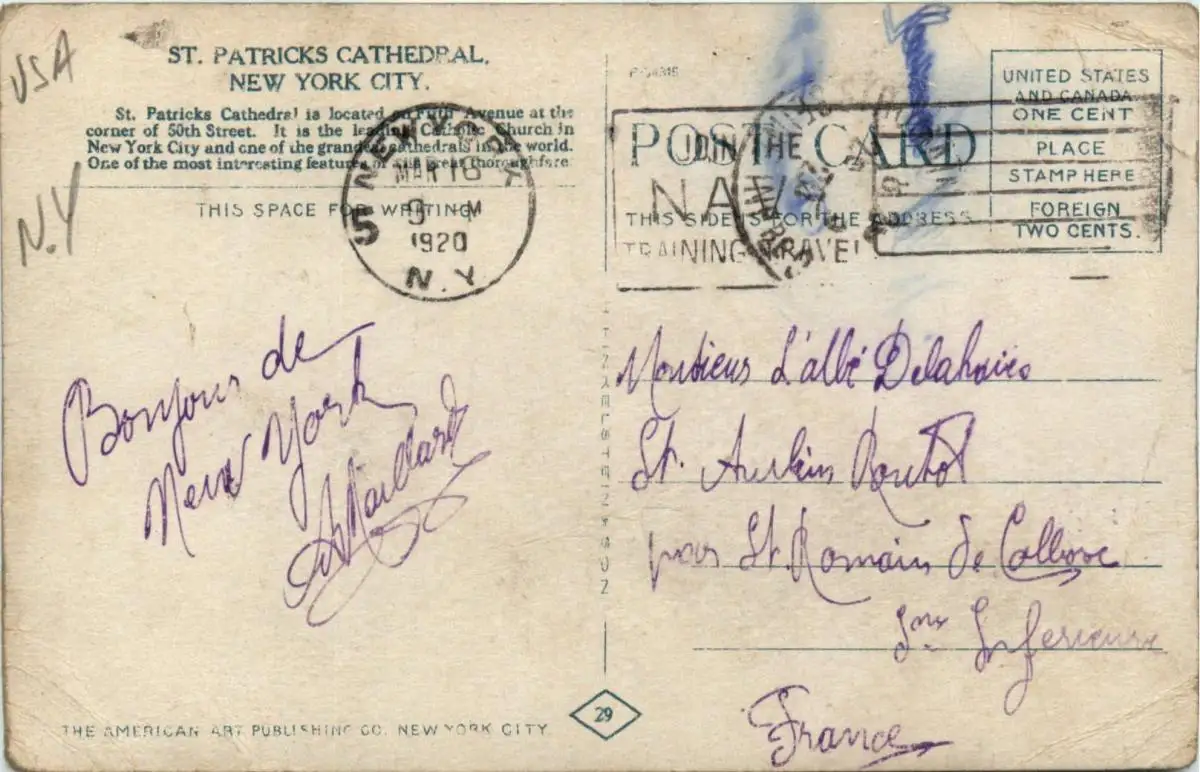 USA
N.Y
ST. PATRICKS CATHEDRAL,
NEW YORK CITY.
St. Patricks Cathedral is located on Fifth Avenue at the
corner of 50th Street. It is the leading Catholic Church in
New York City and one of the grandest cathedrals in the world.
One of the most interesting features of this great thoroughfare
THIS SPACE FOR WRITING
NEW YORK
MAR 16
9 M
1920
N.Y
5
Bonjour de
New York
A Maillard
THE AMERICAN ART PUBLISHING CO. NEW YORK CITY
29
FINKELSTEIN & SON
POST CARD
THIS SIDE IS FOR THE ADDRESS
JOIN THE
NAVY
TRAINING TRAVEL
UNITED STATES
AND CANADA
ONE CENT
PLACE
STAMP HERE
FOREIGN
TWO CENTS.
Monsieur L'abbé Delahaies
St. Aubin Routot
par St. Romain de Colbosc
Sne Inferieure
France